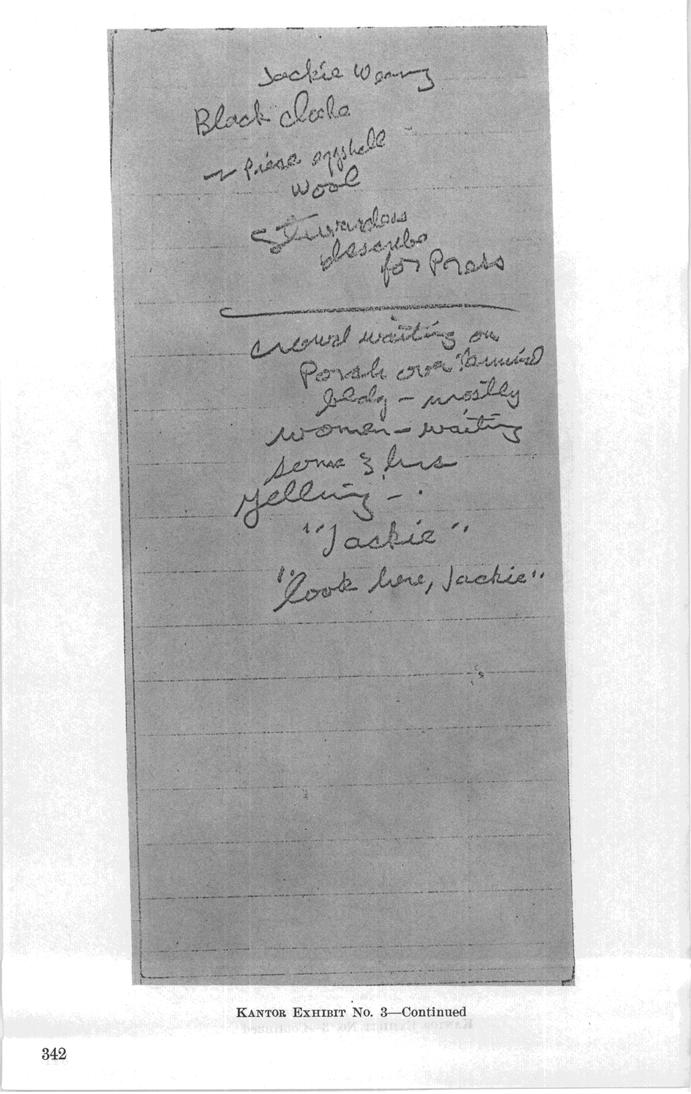 Jackie Wearing
Black cloche
2 Piece eggshell
wool
Stewardess
describe
for Press
crowd waiting on
Porch over Terminal
bldg - mostly
women - waiting
some 3 hrs
yelling -
"Jackie"
"look here, Jackie"
KANTOR EXHIBIT No. 3—Continued
342